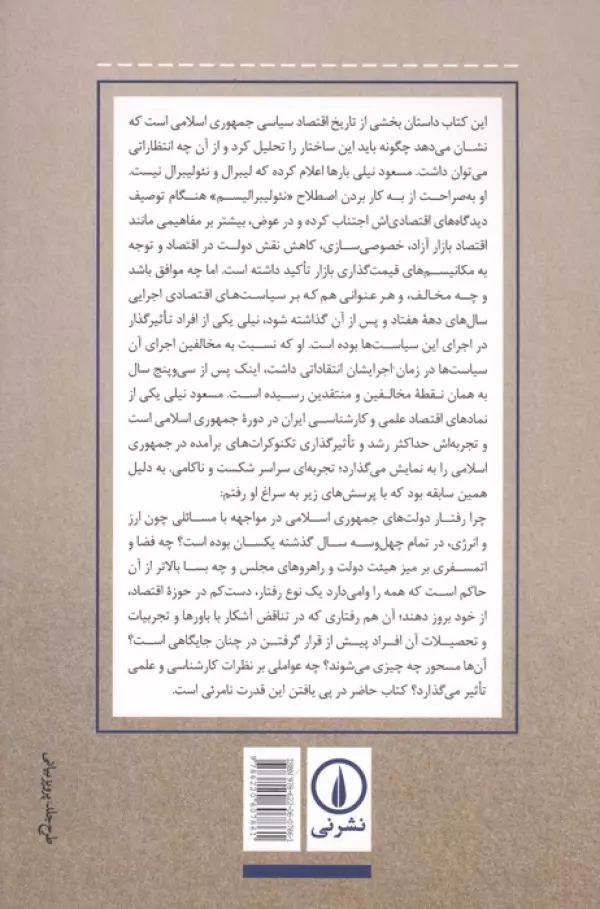 این کتاب داستان بخشی از تاریخ اقتصاد سیاسی جمهوری اسلامی است که
نشان می‌دهد چگونه باید این ساختار را تحلیل کرد و از آن چه انتظاراتی
می‌توان داشت. مسعود نیلی بارها اعلام کرده که لیبرال و نئولیبرال نیست.
او به‌صراحت از به کار بردن اصطلاح «نئولیبرالیسم» هنگام توصیف
دیدگاه‌های اقتصادی‌اش اجتناب کرده و در عوض، بیشتر بر مفاهیمی مانند
اقتصاد بازار آزاد، خصوصی‌سازی، کاهش نقش دولت در اقتصاد و توجه
به مکانیسم‌های قیمت‌گذاری بازار تأکید داشته است. اما چه موافق باشد
و چه مخالف، و هر عنوانی هم که بر سیاست‌های اقتصادی اجرایی
سال‌های دههٔ هفتاد و پس از آن گذاشته شود، نیلی یکی از افراد تأثیرگذار
در اجرای این سیاست‌ها بوده است. او که نسبت به مخالفین اجرای آن
سیاست‌ها در زمان اجرایشان انتقاداتی داشت، اینک پس از سی‌وپنج سال
به همان نقطهٔ مخالفین و منتقدین رسیده است. مسعود نیلی یکی از
نمادهای اقتصاد علمی و کارشناسی ایران در دورهٔ جمهوری اسلامی است
و تجربه‌اش حداکثر رشد و تأثیرگذاری تکنوکرات‌های برآمده در جمهوری
اسلامی را به نمایش می‌گذارد؛ تجربه‌ای سراسر شکست و ناکامی. به دلیل
همین سابقه بود که با پرسش‌های زیر به سراغ او رفتم:
چرا رفتار دولت‌های جمهوری اسلامی در مواجهه با مسائلی چون ارز
و انرژی، در تمام چهل‌وسه سال گذشته یکسان بوده است؟ چه فضا و
اتمسفری بر میز هیئت دولت و راهروهای مجلس و چه بسا بالاتر از آن
حاکم است که همه را وامی‌دارد یک نوع رفتار، دست‌کم در حوزهٔ اقتصاد،
از خود بروز دهند؛ آن هم رفتاری که در تناقض آشکار با باورها و تجربیات
و تحصیلات آن افراد پیش از قرار گرفتن در چنان جایگاهی است؟
آن‌ها مسحور چه چیزی می‌شوند؟ چه عواملی بر نظرات کارشناسی و علمی
تأثیر می‌گذارد؟ کتاب حاضر در پی یافتن این قدرت نامرئی است.
نشرنی
ISBN 978-622-06-0786-1
9786220607861
طرح جلد: پرویز بیانی